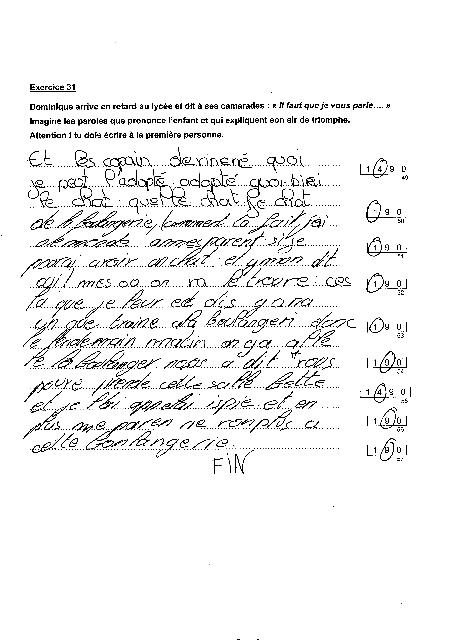 Exercice 31
Dominique arrive en retard au lycée et dit à ses camarades : « Il faut que je vous parle.... »
Imagine les paroles que prononce l'enfant et qui expliquent son air de triomphe.
Attention ! tu dois écrire à la première personne.
Et les copain devinené quoi
je peut l'adopté adopté quoi bien
le chat quelle chat le chat
de la boulangerie, comment ça fait, j'ai
demande a mes parent si je
pouvai avoir un chat et y mon dit
mes où on va le trouvé : ces
la que je leur ed dis y ana
un que traine a la boulangeri donc
le lendemain matin on ga allé
le la boulanger nous a dit "vous
pouve prende celle salle bette
et je l'ai appelai et en
plus mes paren ne ronplus a
celle boulangerie.
FIN
1 4 9 0
1 9 0
1 9 0
1 9 0
1 9 0
1 9 0
1 4 9 0
1 9 0
1 9 0